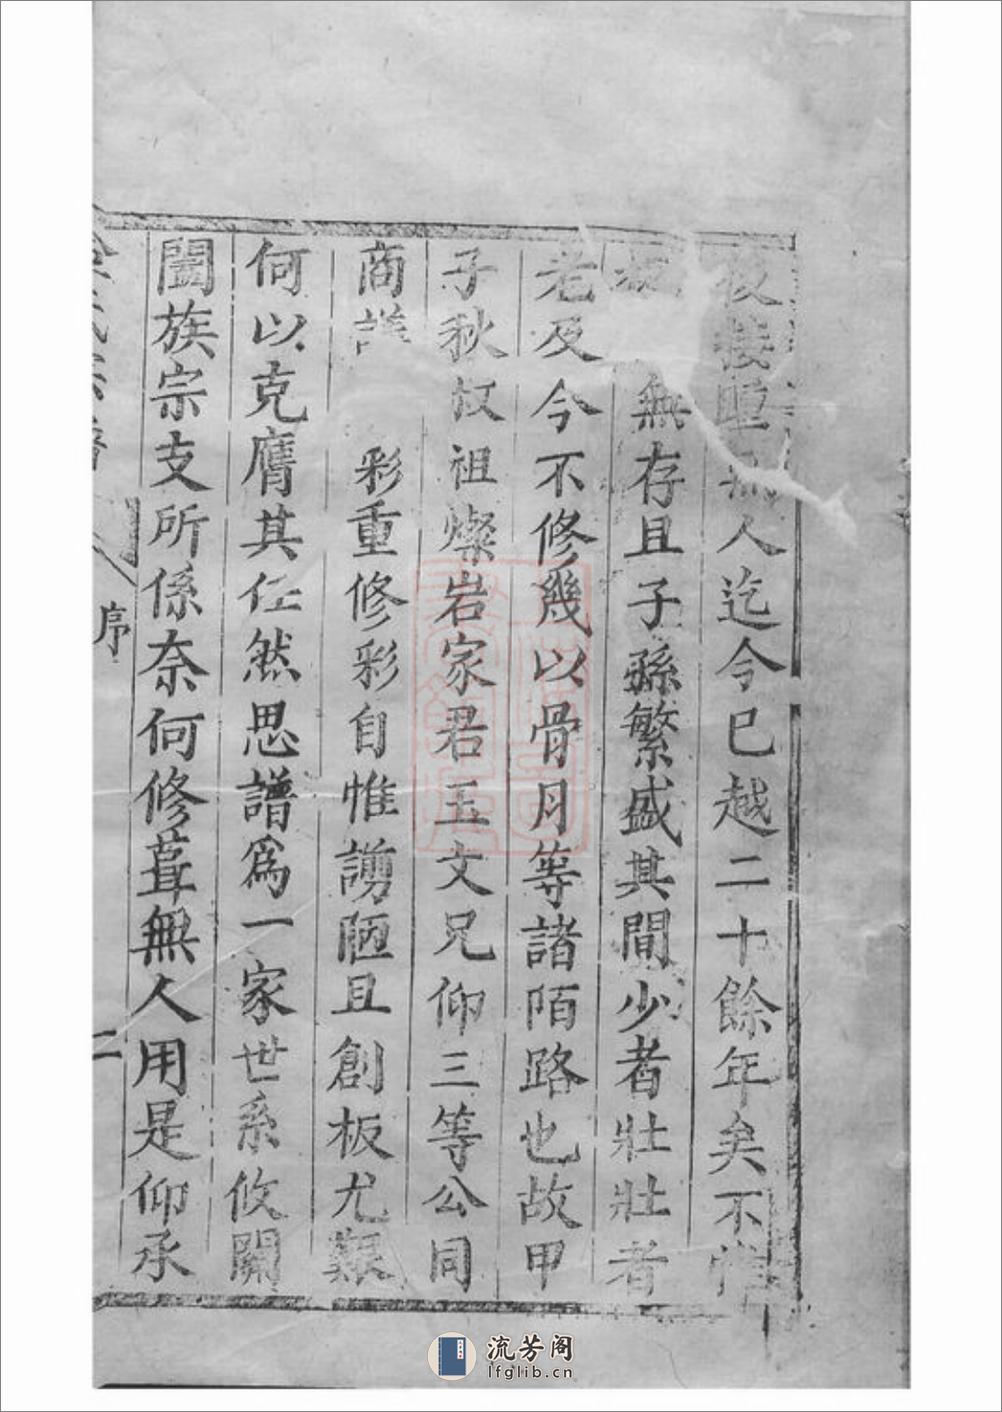 後接踵無人迄今已越二十餘年矣不惟
無存且子孫繁盛其間少者壯壯者
老及今不修幾以骨月等諸陌路也故甲
子秋叔祖燦岩家君玉文兄仰三等公同
商議 彩重修彩自惟謭陋且創板尤艱
何以克膺其任然思譜為一家世系攸關
闔族宗支所係奈何修葺無人用是仰承
序
二
流芳阁
lfglib.cn